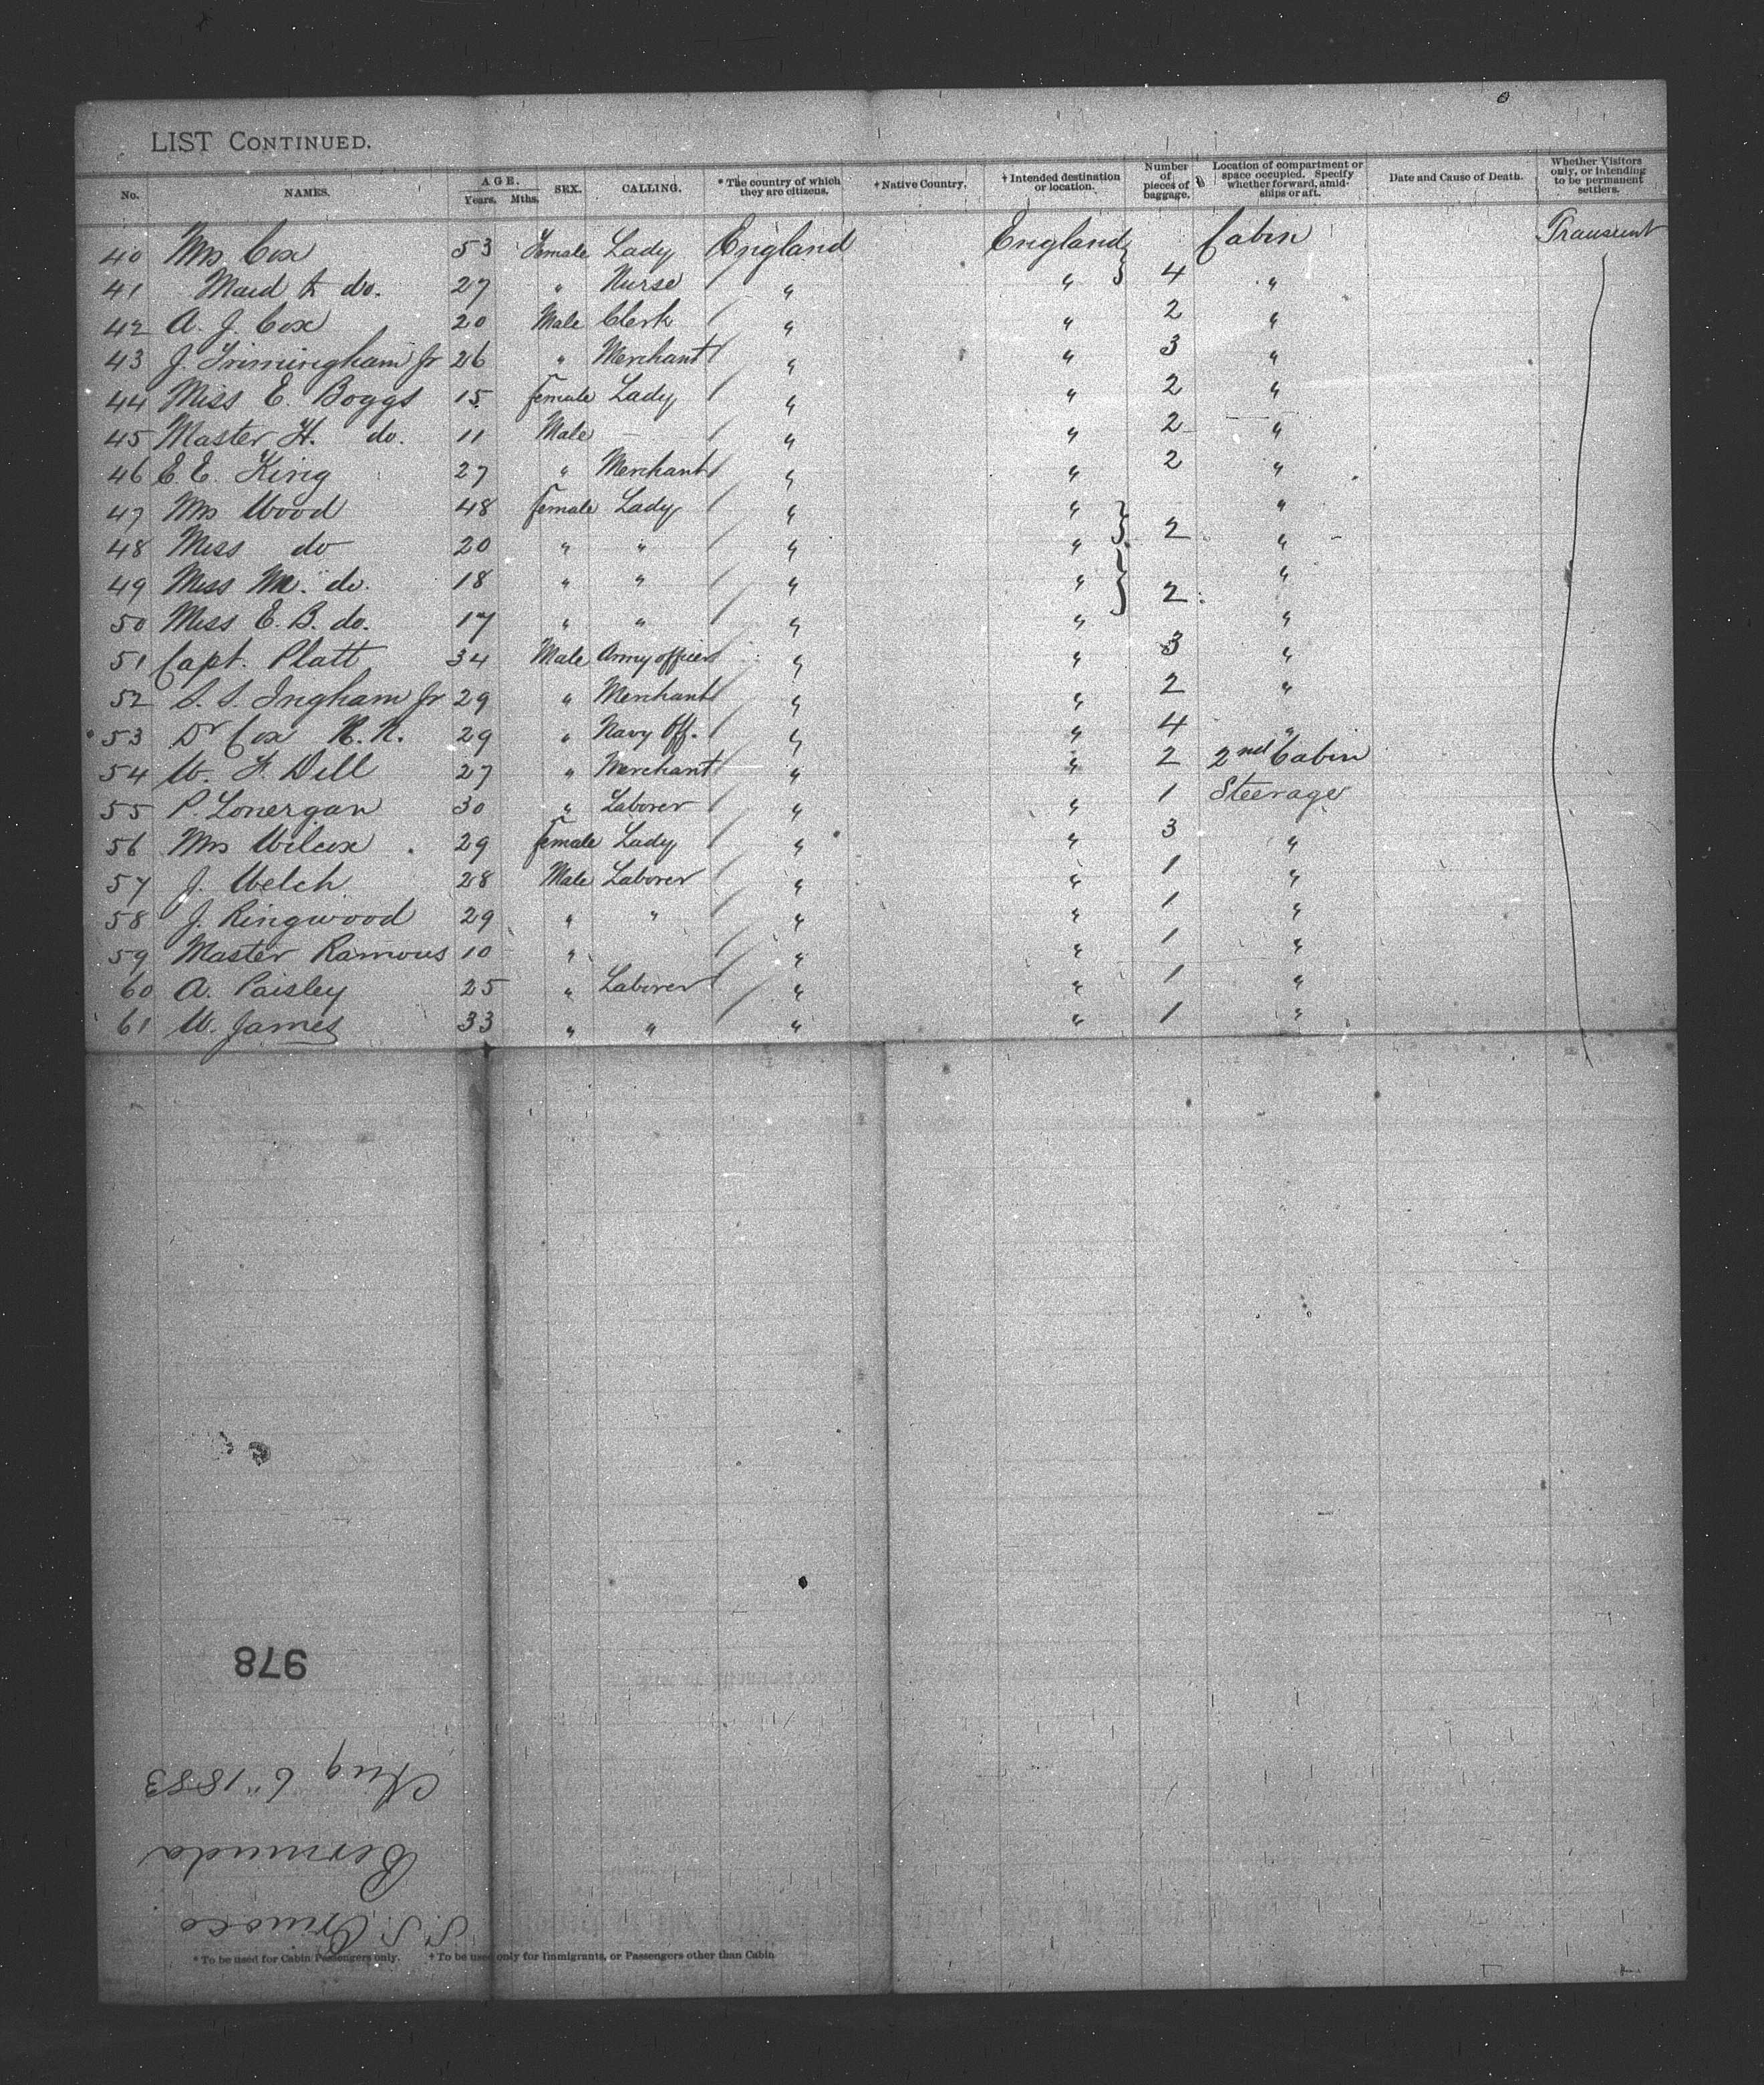 LIST CONTINUED.
No. NAMES. AGE. Years. Mths. SEX. CALLING. * The country of which they are citizens. † Native Country. † Intended destination or location. Number of pieces of baggage. Location of compartment or space occupied. Specify whether forward, amidships or aft. Date and Cause of Death. Whether Visitors only, or intending to be permanent settlers.
40 Mrs Cox 53 Female Lady England England Cabin Transient
41 Maid to do. 27 " Nurse " " 4 "
42 A. J. Cox 20 Male Clerk " " 2 "
43 J. Trimingham Jr 26 " Merchant " " 3 "
44 Miss E. Boggs 15 female Lady " " 2 "
45 Master H. do. 11 Male - " " 2 "
46 E. E. King 27 " Merchant " " 2 "
47 Mrs Wood 48 female Lady " " "
48 Miss do 20 " " " " 2 "
49 Miss M. do. 18 " " " " "
50 Miss E. B. do. 17 " " " " 2 "
51 Capt. Platt 34 Male Army officer " " 3 "
52 S. S. Ingham Jr 29 " Merchant " " 2 "
53 Dr Cox R. N. 29 " Navy Off. " " 4 "
54 W. F. Dill 27 " Merchant " " 2 2nd Cabin
55 P. Lonergan 30 " Laborer " " 1 Steerage
56 Mrs Wilcox 29 female Lady " " 3 "
57 J. Welch 28 Male Laborer " " 1 "
58 J. Ringwood 29 " " " " 1 "
59 Master Ramous 10 " " " 1 "
60 A. Paisley 25 " Laborer " " 1 "
61 W. James 33 " " " " 1 "
978
Aug 6" 1883
Bermuda
S. S. Orinoco
* To be used for Cabin Passengers only. † To be used only for Immigrants, or Passengers other than Cabin